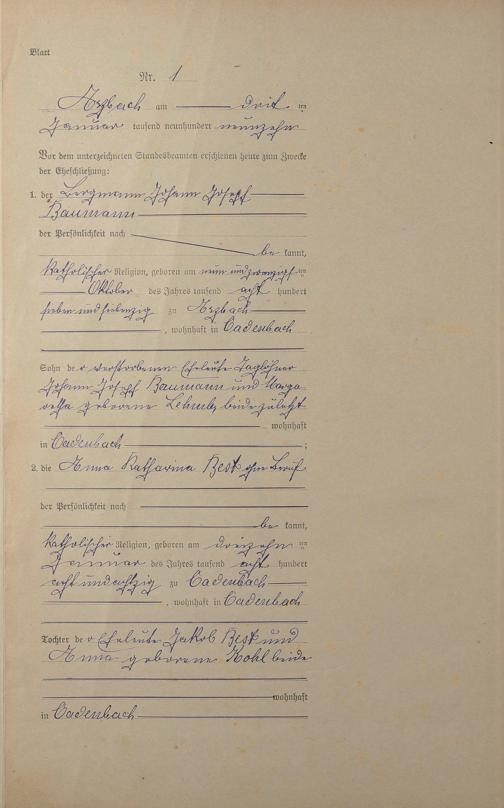 Blatt
Nr. 1
Arzbach am drit ten
Januar tausend neunhundert neunzehn
Vor dem unterzeichneten Standesbeamten erschienen heute zum Zwecke
der Eheschließung:
1. der Bergmann Johann Josepf
Baumann
der Persönlichkeit nach
be kannt,
katholischer Religion, geboren am neun und zwanzigsten
Oktober des Jahres tausend acht hundert
sieben und siebenzig zu Arzbach
, wohnhaft in Cadenbach
Sohn der verstorbenen Eheleute Taglöhner
Johann Josepf Baumann und Marga
retha geborene beide zuletzt
wohnhaft
in Cadenbach ;
2. die Anna Katharina Best ohne Beruf
der Persönlichkeit nach
be kannt,
katholischer Religion, geboren am dreizehn ten
Januar des Jahres tausend acht hundert
acht und achtzig zu Cadenbach
, wohnhaft in Cadenbach
Tochter der Eheleute Jakob Best und
Anna geborene Kohl beide
wohnhaft
in Cadenbach